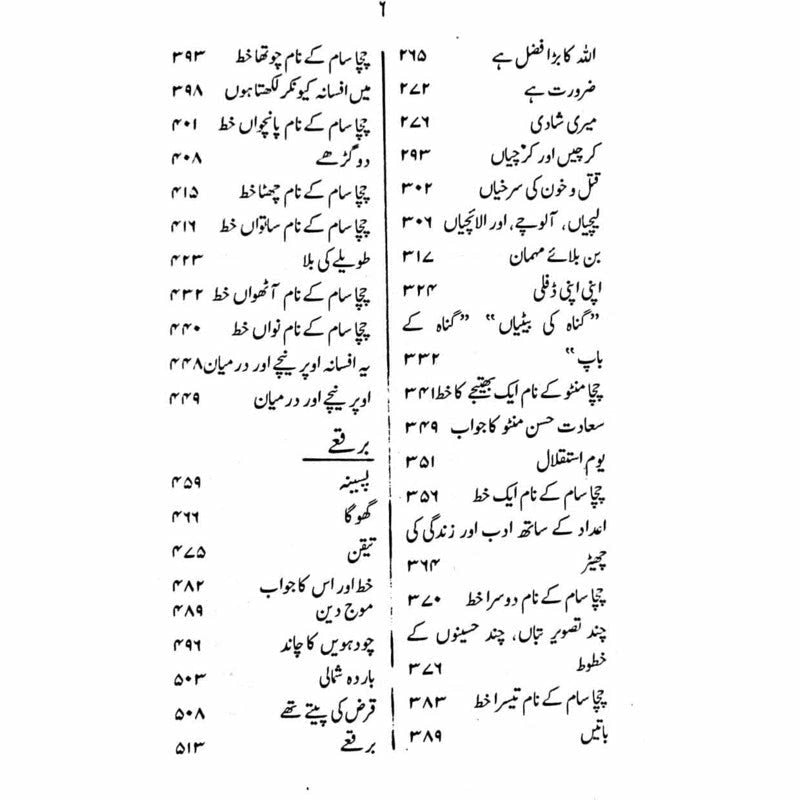 ۶
اللہ کا بڑا فضل ہے ۲۶۵
ضرورت ہے ۲۷۲
میری شادی ۲۷۶
کرچیں اور کرچیاں ۲۹۳
قتل و خون کی سرخیاں ۳۰۲
لیچیاں، آلوچے، اور الائچیاں ۳۰۶
بن بلائے مہمان ۳۱۷
اپنی اپنی ڈفلی ۳۲۴
”گناہ کی بیٹیاں“ ”گناہ کے
باپ“ ۳۳۲
چچا منٹو کے نام ایک بھتیجے کا خط ۳۴۱
سعادت حسن منٹو کا جواب ۳۴۹
یوم استقلال ۳۵۱
چچا سام کے نام ایک خط ۳۵۶
اعداد کے ساتھ ادب اور زندگی کی
چھیڑ ۳۶۴
چچا سام کے نام دوسرا خط ۳۷۰
چند تصویر بتاں، چند حسینوں کے
خطوط ۳۷۶
چچا سام کے نام تیسرا خط ۳۸۳
باتیں ۳۸۹
چچا سام کے نام چوتھا خط ۳۹۳
میں افسانہ کیونکر لکھتا ہوں ۳۹۸
چچا سام کے نام پانچواں خط ۴۰۱
دو گڑھے ۴۰۸
چچا سام کے نام چھٹا خط ۴۱۵
چچا سام کے نام ساتواں خط ۴۱۶
طویلے کی بلا ۴۲۳
چچا سام کے نام آٹھواں خط ۴۳۲
چچا سام کے نام نواں خط ۴۴۰
یہ افسانہ اوپر نیچے اور درمیان ۴۴۸
اوپر نیچے اور درمیان ۴۴۹
برقعے
پسینہ ۴۵۹
گھوگا ۴۶۶
تیقن ۴۷۵
خط اور اس کا جواب ۴۸۲
موج دین ۴۸۹
چودہویں کا چاند ۴۹۶
باردہ شمالی ۵۰۳
قرض کی پیتے تھے ۵۰۸
برقعے ۵۱۳